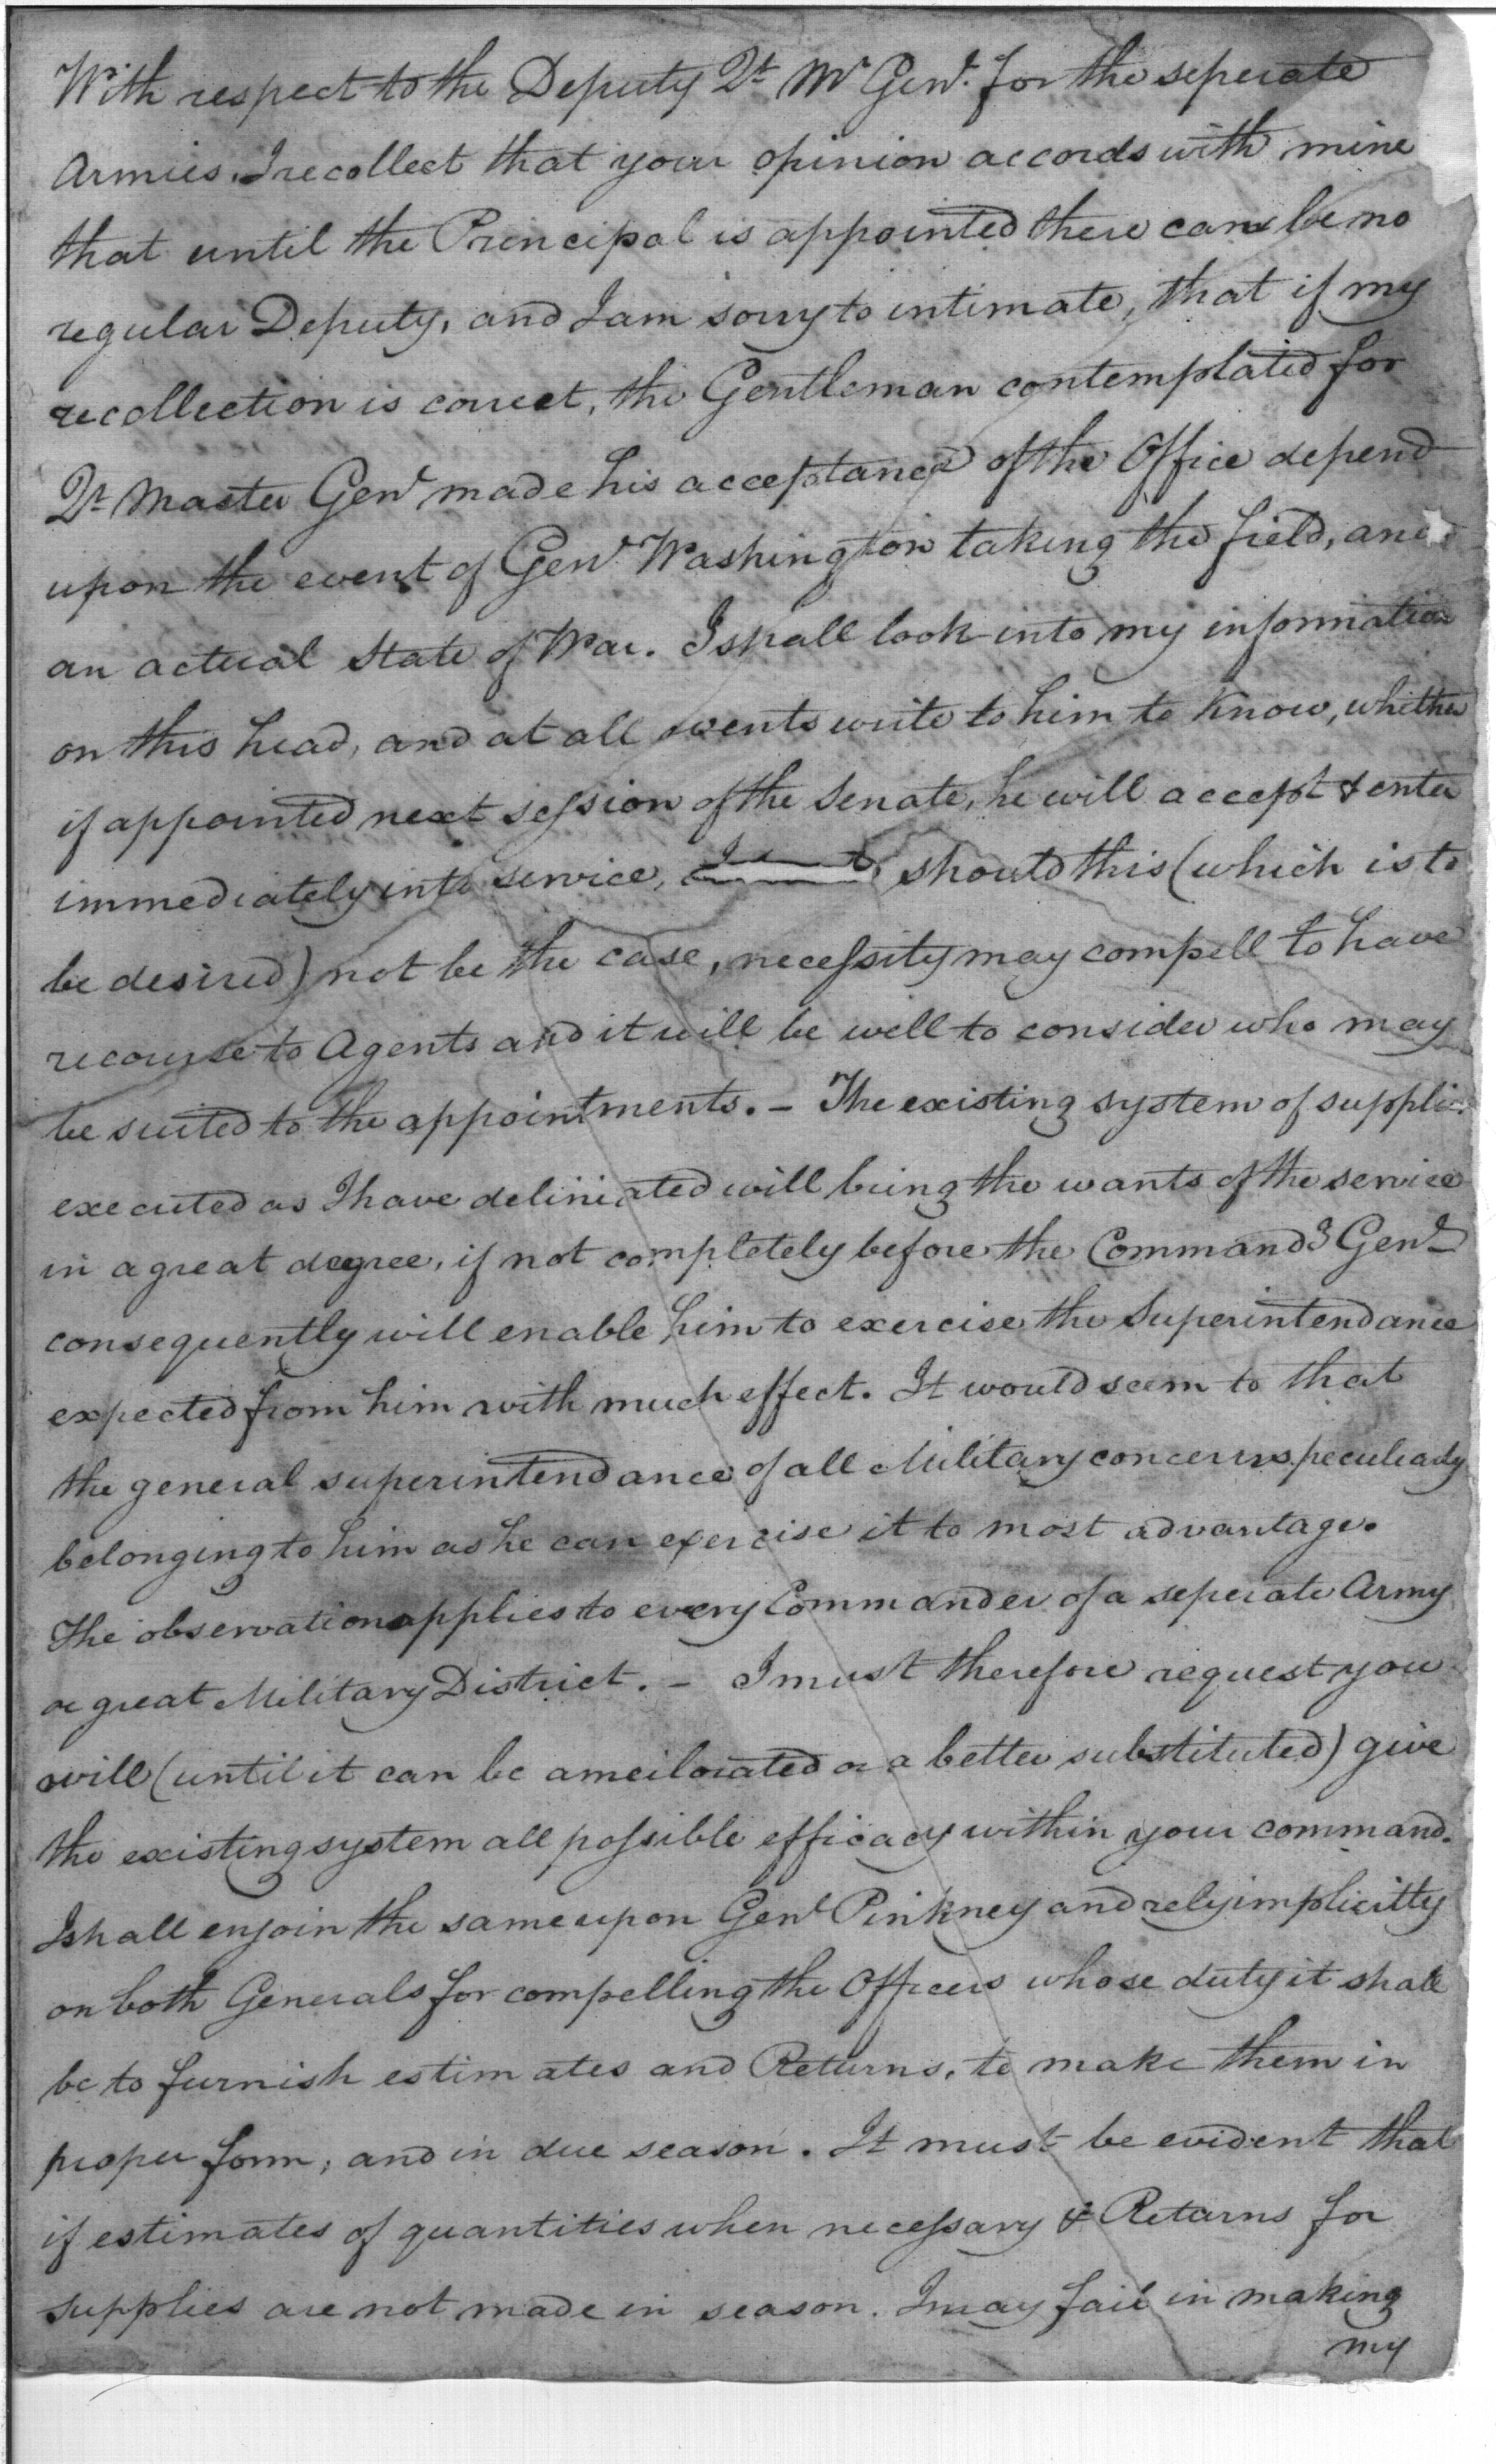 With respect to the Deputy Qt Mr Genl. for the seperate
Armies. I recollect that your opinion accords with mine
that until the Principal is appointed there can be no
regular Deputy, and I am sorry to intimate, that if my
recollection is correct, the Gentleman contemplated for
Qr Master Genl made his acceptance of the Office depend
upon the event of Genl. Washington taking the field, and
an actual State of War. I shall look into my information
on this head, and at all events write to him to Know, whether
if appointed next session of the Senate, he will accept & enter
immediately into service, should this (which is to
be desired) not be the case, necessity may compell to have
recourse to Agents and it will be well to consider who may
be suited to the appointments. — The existing system of supplies
executed as I have deliniated will bring the wants of the service
in a great degree, if not completely before the Commandg Genl
consequently will enable him to exercise the Superintendance
expected from him with much effect. It would seem to that
the general superintendance of all Military concerns peculiarly
belonging to him as he can exercise it to most advantage.
The observation applies to every Commander of a seperate Army
or great Military District. — I must therefore request you
will (until it can be ameilorated or a better substituted) give
the existing system all possible efficacy within your command.
I shall enjoin the same upon Genl Pinkney and rely implicitly
on both Generals for compelling the Officers whose duty it shall
be to furnish estimates and Returns, to make them in
proper form, and in due season. It must be evident that
if estimates of quantities when necessary & Returns for
supplies are not made in season. I may fail in making
my